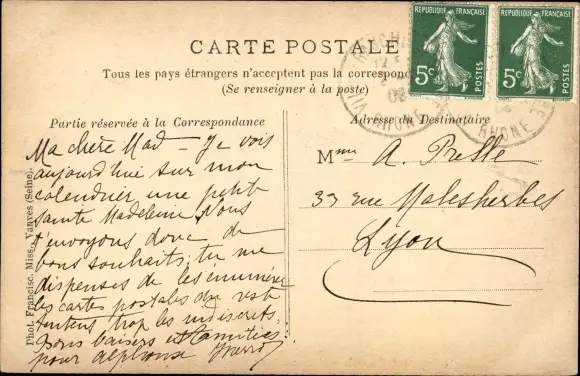 CARTE POSTALE
Tous les pays étrangers n'acceptent pas la correspon
(Se renseigner à la poste)
REPUBLIQUE FRANÇAISE
5c
POSTES
REPUBLIQUE FRANÇAISE
5c
POSTES
RHONE
RHONE
Partie réservée à la Correspondance
Ma chère Mad - Je vois
aujourd'hui sur mon
calendrier une petite
sainte Madeleine. Nous
t'envoyons donc de
bons souhaits; tu me
dispenses de les énumérer
les cartes postales
trop les indiscrets.
Bons baisers et amitiés
pour Alphonse
Adresse du Destinataire
Mme A. Presle
33 rue Malesherbes
Lyon
Phot. Francisc. Miss., Vanves (Seine).